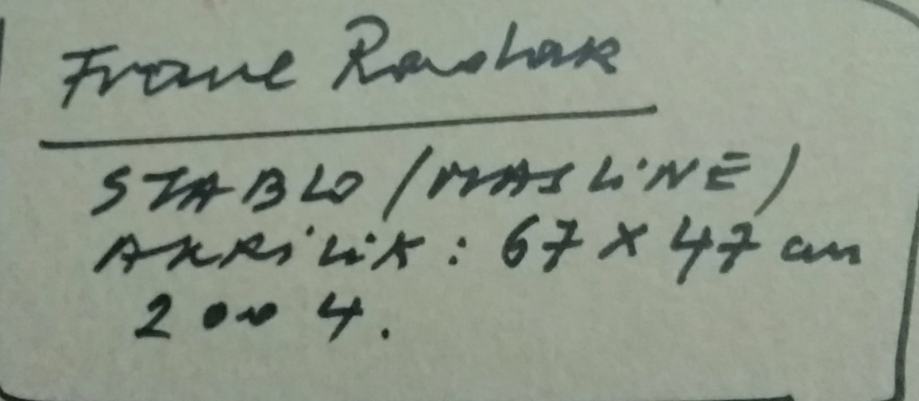 Frane Radak
STABLO (MASLINE)
AKRILIK: 67 X 47 cm
2004.